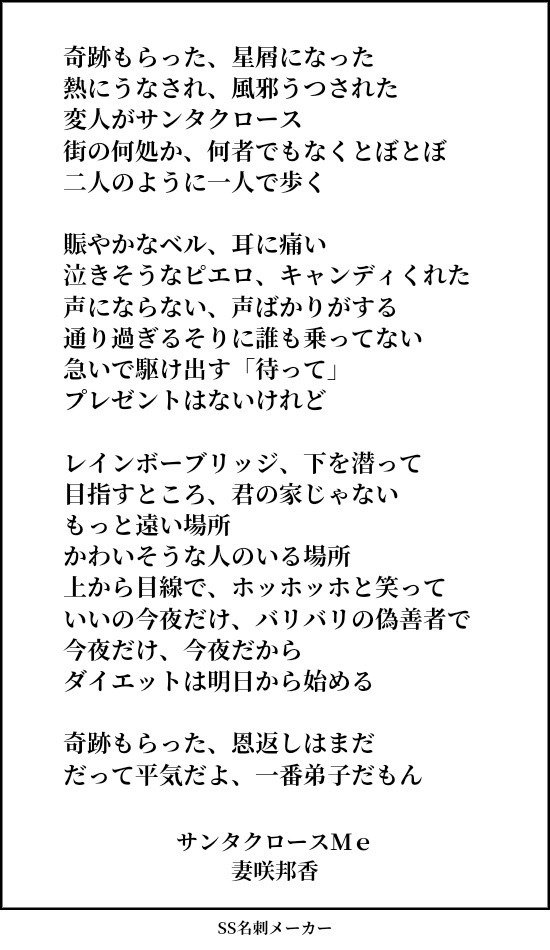 奇跡もらった、星屑になった
熱にうなされ、風邪うつされた
変人がサンタクロース
街の何処か、何者でもなくとぼとぼ
二人のように一人で歩く
賑やかなベル、耳に痛い
泣きそうなピエロ、キャンディくれた
声にならない、声ばかりがする
通り過ぎるそりに誰も乗ってない
急いで駆け出す「待って」
プレゼントはないけれど
レインボーブリッジ、下を潜って
目指すところ、君の家じゃない
もっと遠い場所
かわいそうな人のいる場所
上から目線で、ホッホッホと笑って
いいの今夜だけ、バリバリの偽善者で
今夜だけ、今夜だから
ダイエットは明日から始める
奇跡もらった、恩返しはまだ
だって平気だよ、一番弟子だもん
サンタクロースＭｅ
妻咲邦香
SS名刺メーカー